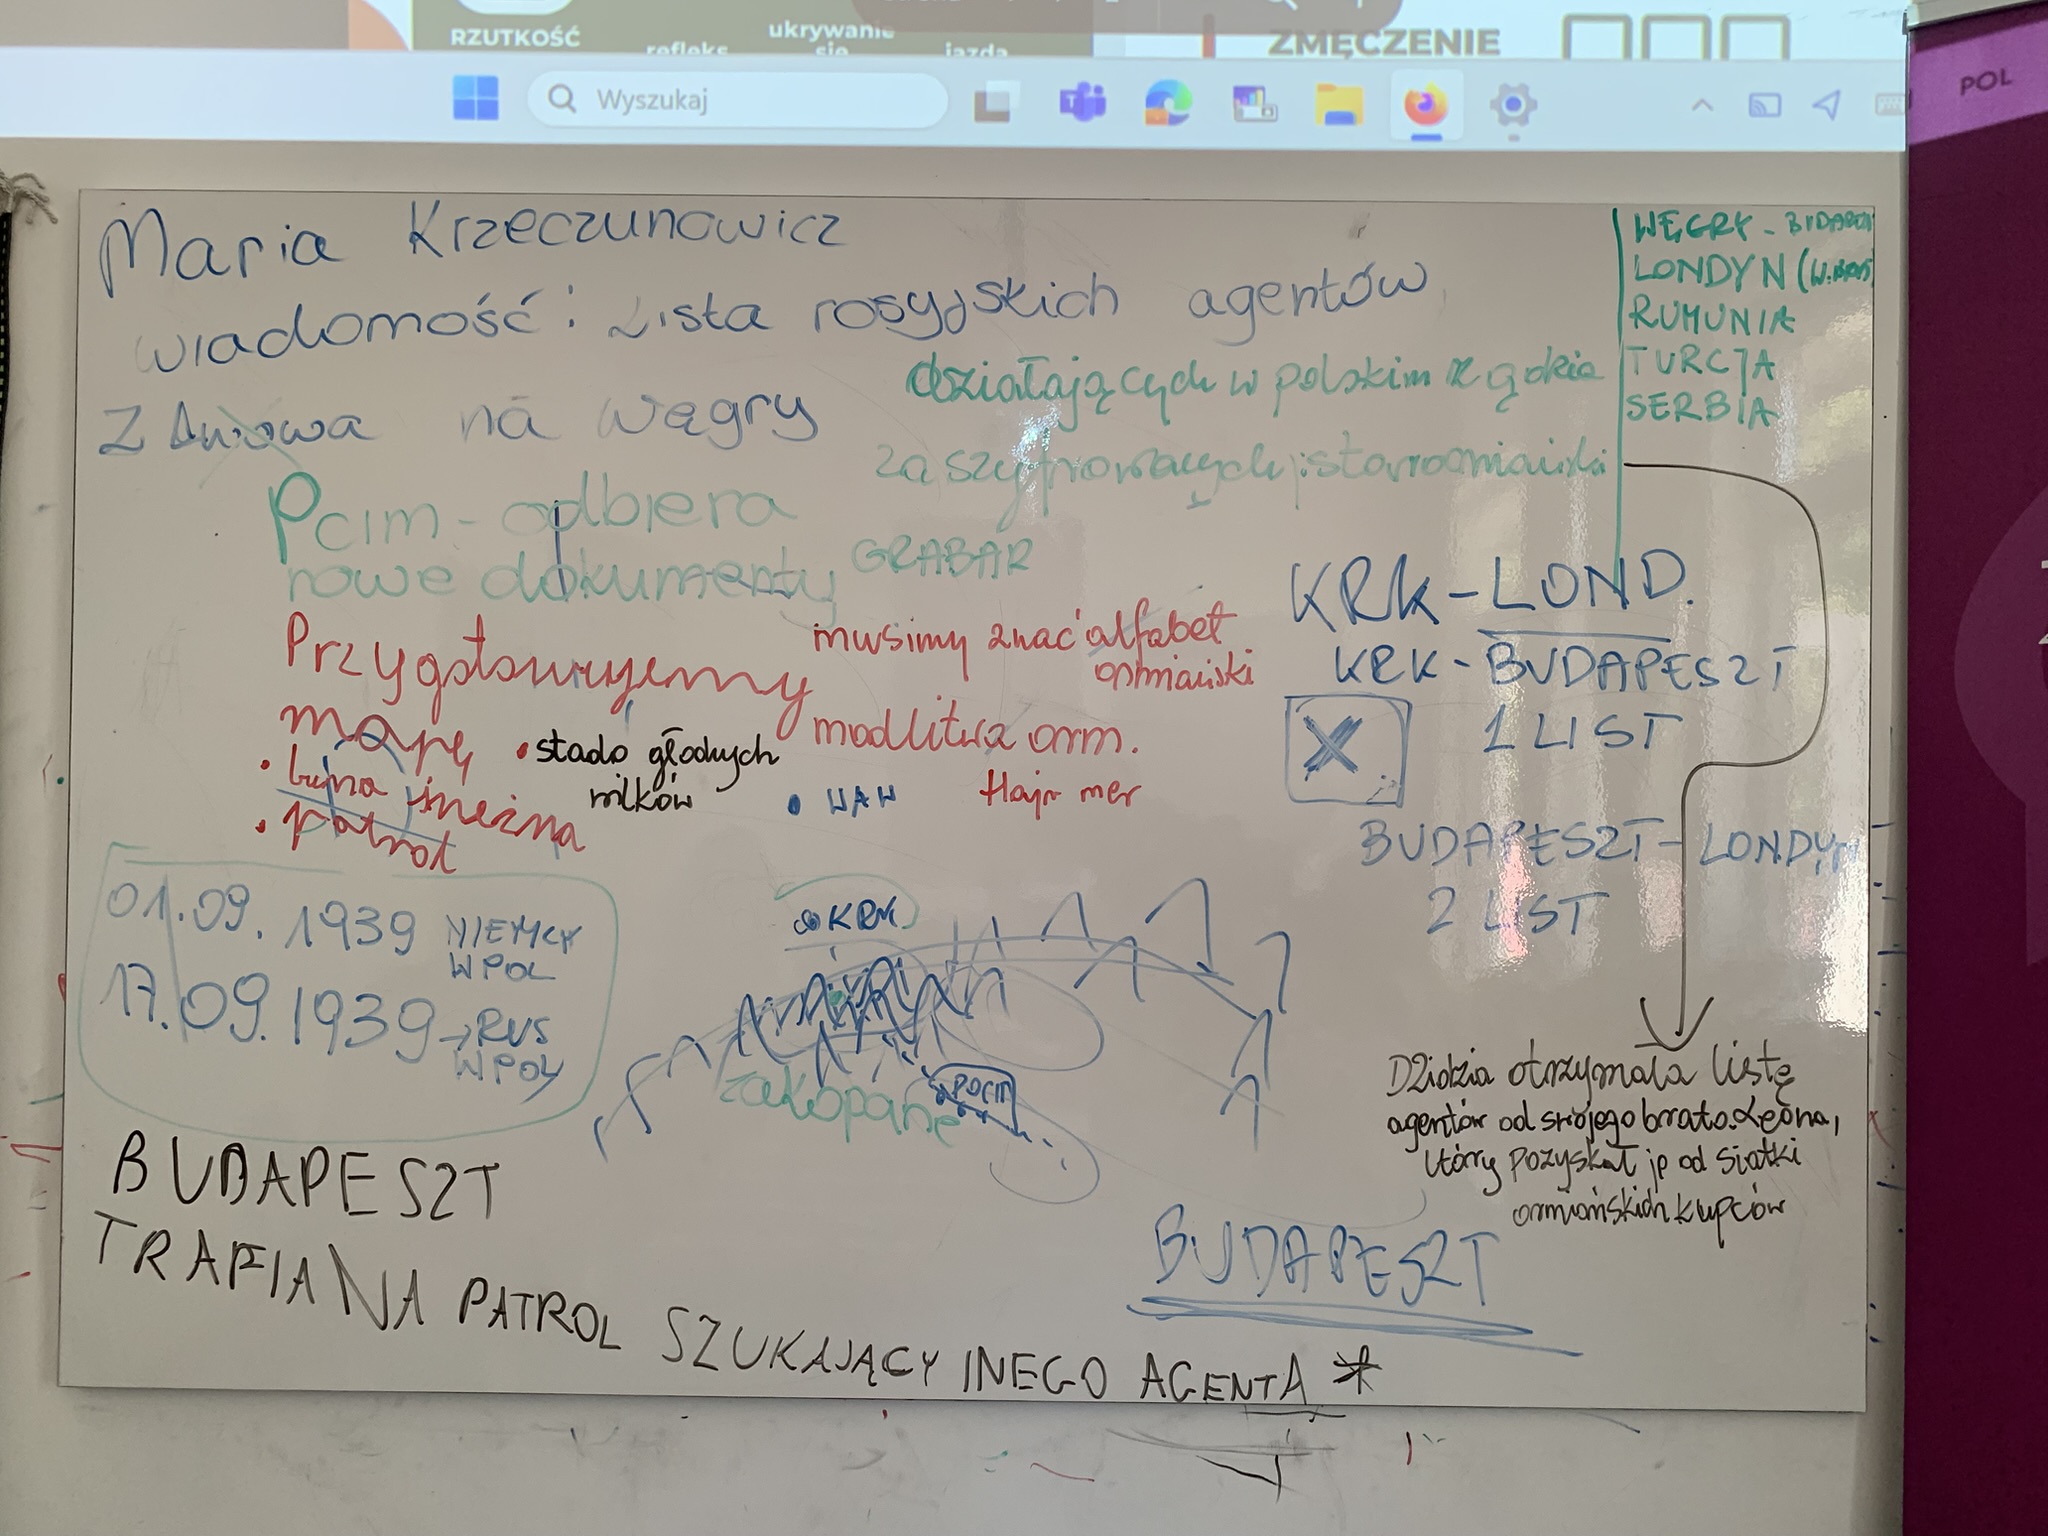 RZUTKOŚĆ
refleks
ukrywanie
się
jazda
ZMĘCZENIE
Wyszukaj
POL
Maria Krzeczunowicz
wiadomość: Lista rosyjskich agentów
działających w polskim
Z Lwowa na Węgry
zaszyfrowanych staroormiański
GRABAR
Pcim - odbiera
nowe dokumenty
Przygotowujemy
mapę
• burza śnieżna
• patrol
• stado głodnych
wilków
musimy znać alfabet
ormiański
modlitwa orm.
Hajr mer
• WAW
WĘGRY - BUDAPESZT
LONDYN (W. BRYT
RUMUNIA
TURCJA
SERBIA
KRK - LOND.
KRK - BUDAPESZT
1 LIST
X
BUDAPESZT - LONDYN
2 LIST
01.09.1939 NIEMCY
W POL
17.09.1939 → RUS
W POL
do KRK
zakopane
PCIM
Dzidzia otrzymała listę
agentów od swojego brata Leona,
który pozyskał ją od siatki
ormiańskich kupców
BUDAPESZT
BUDAPESZT
TRAFIA NA PATROL SZUKAJĄCY INEGO AGENTA *